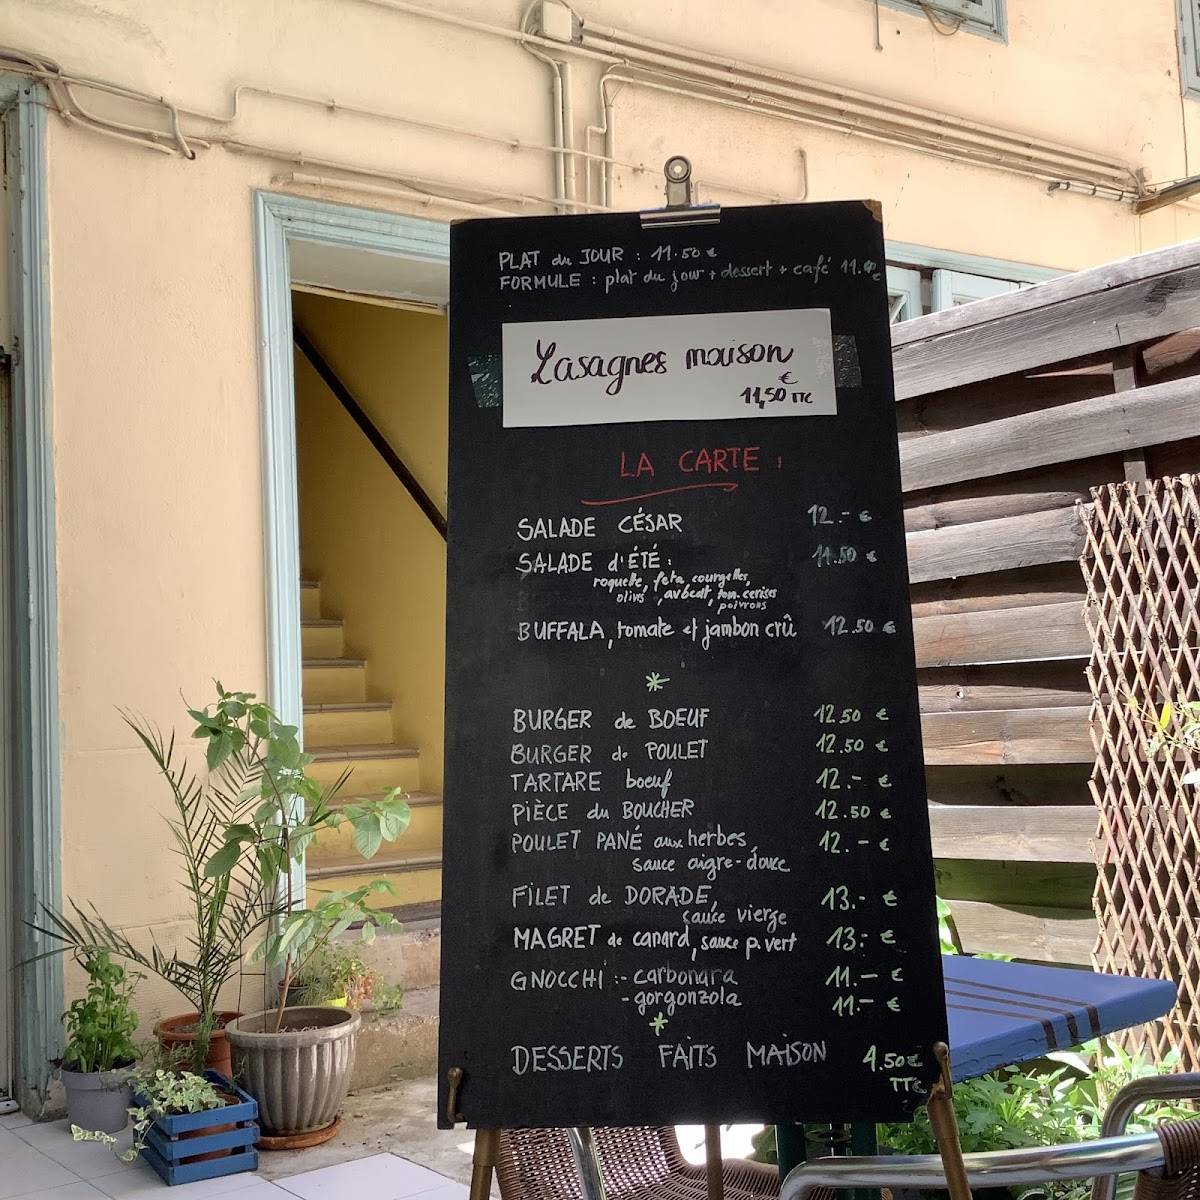 PLAT du JOUR : 11.50 €
FORMULE : plat du jour + dessert + café
Lasagnes maison
€
11,50 TTC
LA CARTE :
SALADE CÉSAR 12.- €
SALADE d'ÉTÉ : 11.50 €
roquette, feta, courgettes,
olives, avocat, tom. cerises
poivrons
BUFFALA, tomate et jambon crû 12.50 €
BURGER de BOEUF 12.50 €
BURGER de POULET 12.50 €
TARTARE boeuf 12.- €
PIÈCE du BOUCHER 12.50 €
POULET PANÉ aux herbes, 12.- €
sauce aigre-douce
FILET de DORADE, 13.- €
sauce vierge
MAGRET de canard, sauce p. vert 13.- €
GNOCCHI :- carbonara 11.- €
- gorgonzola 11.- €
DESSERTS FAITS MAISON 4.50 €
TTC